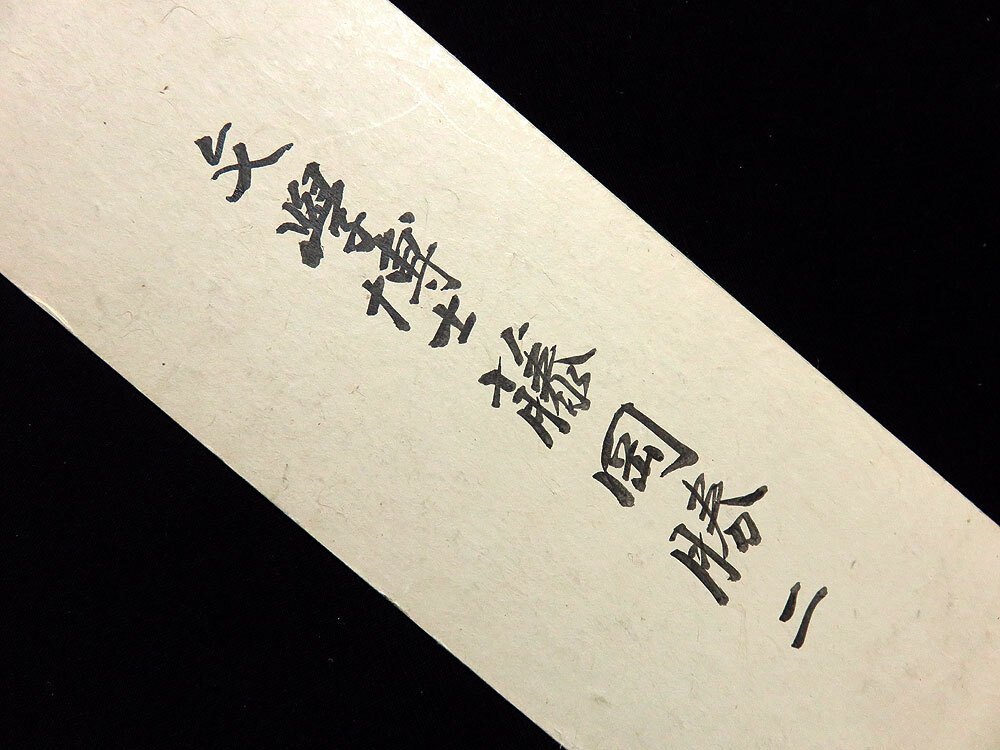 文學博士藤岡勝二